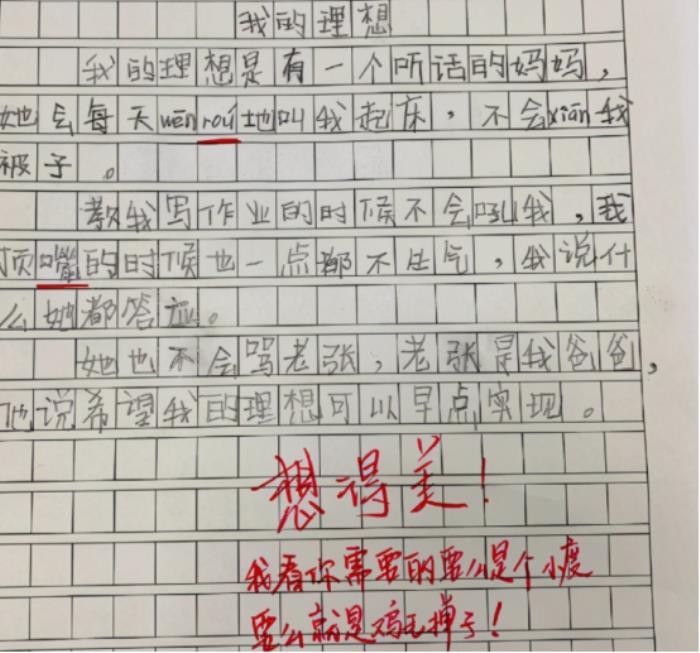 我的理想
我的理想是有一个听话的妈妈，
她会每天wēn roú地叫我起床，不会xiān我
被子。
教我写作业的时候不会吼我，我
顶嘴的时候也一点都不生气，我说什
么她都答应。
她也不会骂老张，老张是我爸爸，
他说希望我的理想可以早点实现。
想得美！
我看你需要的要么是个小度
要么就是鸡毛掸子！